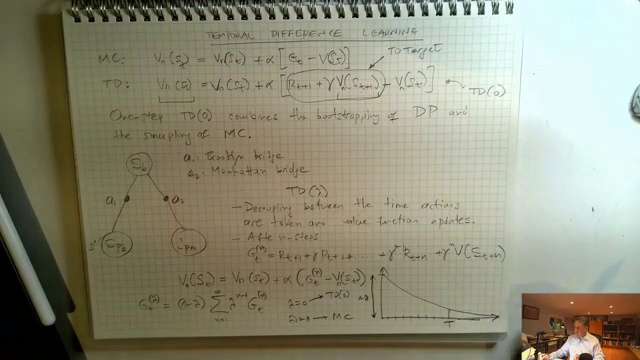 TEMPORAL DIFFERENCE LEARNING
MC: Vπ(St) = Vπ(St) + α [Gt − V(St)]
TD Target
TD: Vπ(St) = Vπ(St) + α [Rt+1 + γ Vπ(St+1) − Vπ(St)]
TD(0)
One-step TD(0) combines the bootstrapping of DP and
the sampling of MC.
S6
a1: Brooklyn bridge
a2: Manhattan bridge
a1
a2
TD(λ)
– Decoupling between the time actions
are taken and value function updates.
– After n-steps
s'
Gt(n) = Rt+1 + γ Rt+2 + ... + γ^n-1 Rt+n + γ^n V(St+n)
Vπ(St) = Vπ(St) + α (Gt(n) − Vπ(St))
Gt(λ) = (1−λ) Σ n=1 ∞ λ^n-1 Gt(n)
λ=0 → TD(0)
λ=1 → MC
1-λ
T